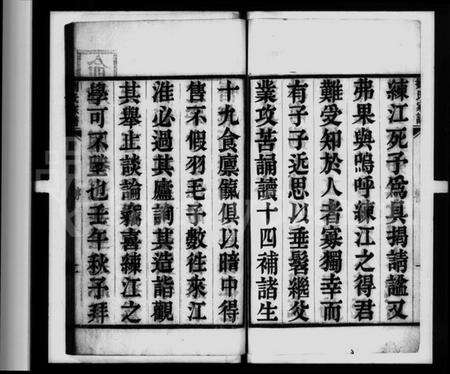 練江死予爲具揭請謚又
弗果與嗚呼練江之得君
難受知於人者寡獨幸而
有子子近思以垂髫繼父
業攻苦誦讀十四補諸生
十九食廩儼俱以暗中得
售不假羽毛予數往來江
淮必過其廬詢其造詣觀
其舉止談論竊喜練江之
學可不墜也壬午秋予拜